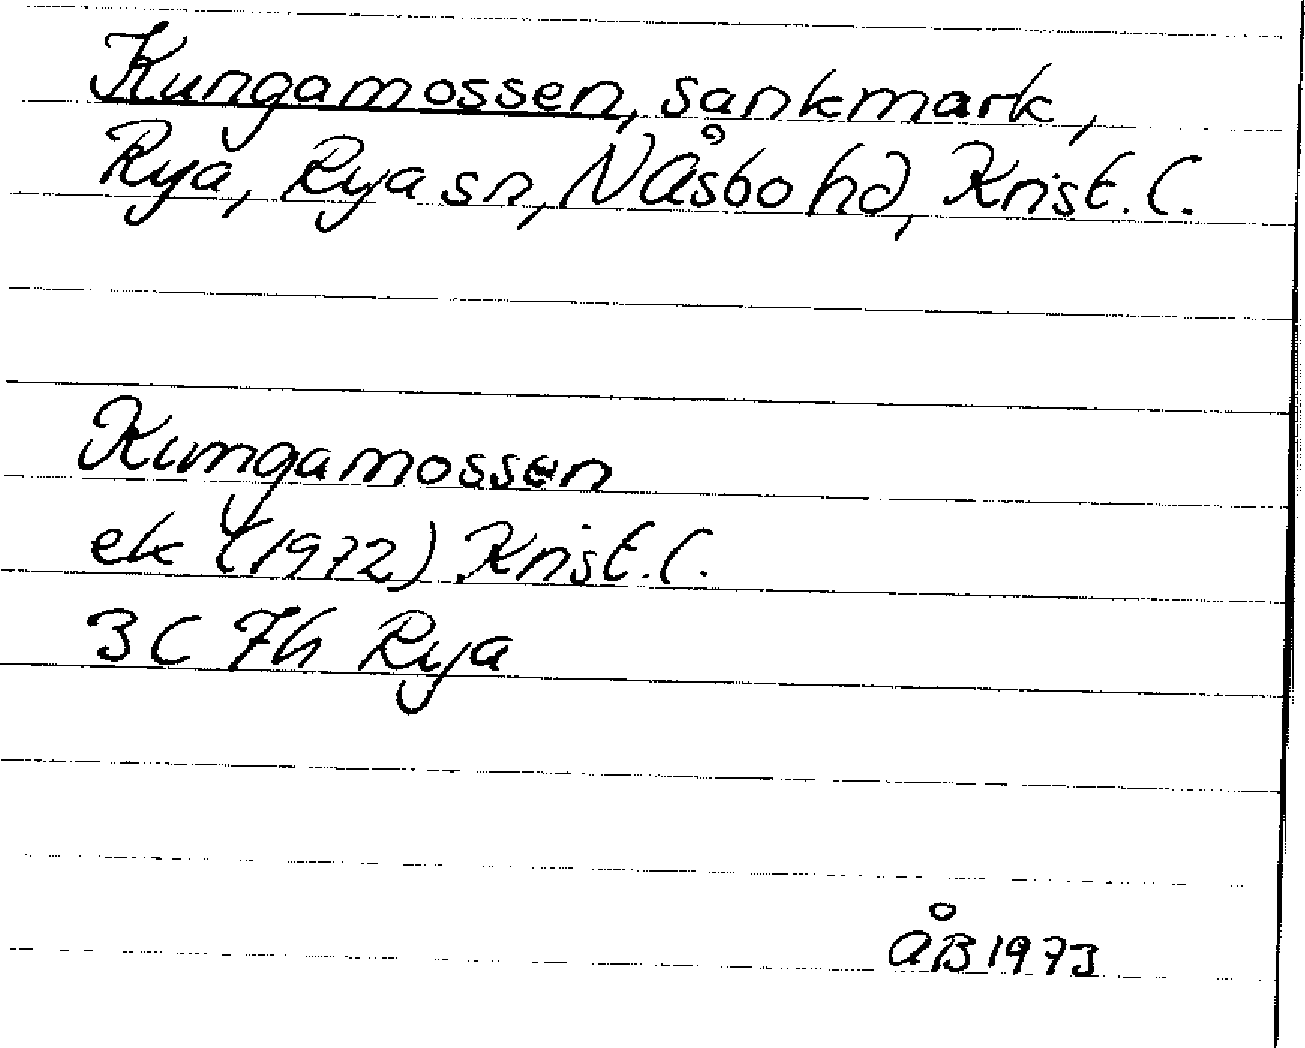 Kungamossen, sankmark,
Rya, Rya sn, N Åsbo hd, Krist. C.
Kungamossen
ek (1972) Krist. C.
3C 7h Rya
ÅB 1973